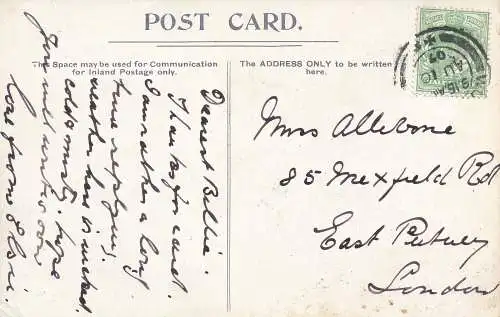 POST CARD.
This Space may be used for Communication
for Inland Postage only.
The ADDRESS ONLY to be written
here.
Dearest Billie.
Thanks for card.
I am rather a long
time replying
weather here is wicked.
cold & misty. hope
you will write soon
love from Elsie.
Miss Allebone
85 Mexfield Rd
East Putney
London
9.15 AM
AU 10
09